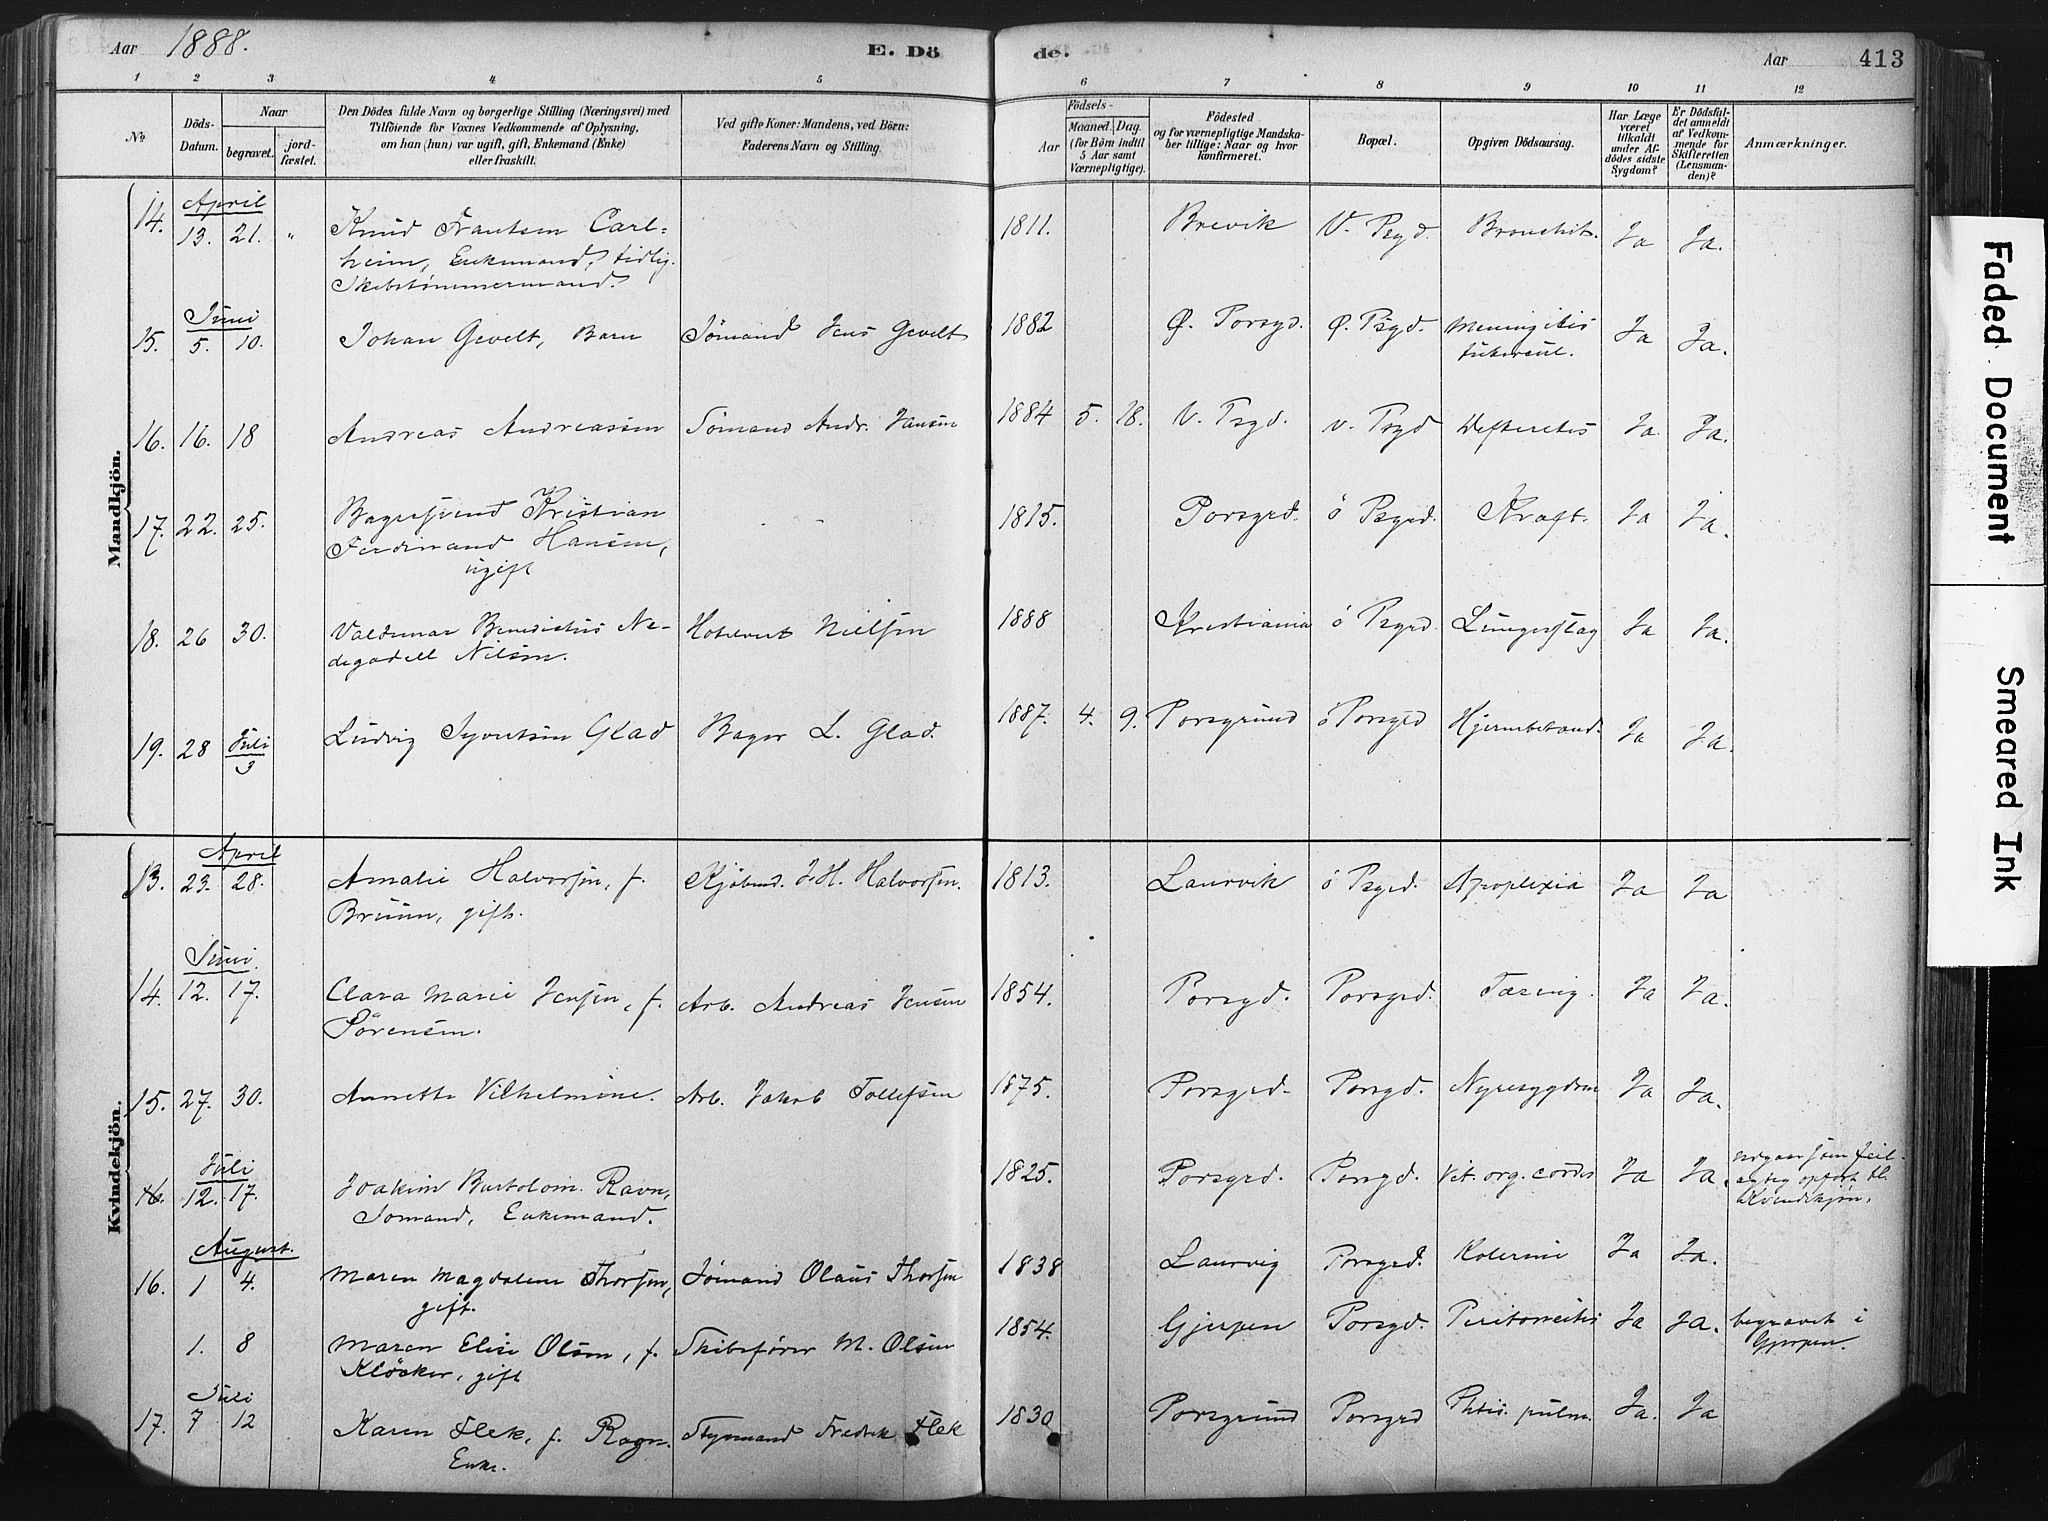 Aar 1888. E. Dö de. Aar 413
1 2 3 4 5 6 7 8 9 10 11 12
№
Döds-Datum.
Naar
begravet.
jord-fæstet.
Den Dödes fulde Navn og borgerlige Stilling (Næringsvei) med
Tilföiende for Voxnes Vedkommende af Oplysning,
om han (hun) var ugift, gift, Enkemand (Enke)
eller fraskilt.
Ved gifte Koner: Mandens, ved Börn:
Faderens Navn og Stilling.
Födsels-
Aar
Maaned. Dag.
(for Börn indtil
5 Aar samt
Værnepligtige).
Födested
og for værnepligtige Mandska-
ber tillige: Naar og hvor
konfirmeret.
Bopæl.
Opgiven Dödsaarsag.
Har Læge
været
tilkaldt
under Af-
dödes sidste
Sygdom?
Er Dödsfal-
det anmeldt
af Vedkom-
mende for
Skifteretten
(Lensman-
den)?
Anmærkninger.
Mandkjön.
April
14. 13. 21. " Knud Frantsen Carl= 1811. Brevik V. Psgd. Bronchit. Ja Ja.
heim, Enkemand, tidlig.
Skibstømmermand.
Juni
15. 5. 10. Johan Gevelt, Barn Sømand Jens Gevelt 1882 Ø. Porsgd. Ø. Psgd. Meningitis Ja Ja.
tubercul.
16. 16. 18 Andreas Andreassen Sømand Andr. Jansen 1884 5. 18. V. Psgd. v. Psgd Defteretis Ja. Ja.
17. 22. 25. Bagersvend Kristian 1815. Porsgrd. ö Psgrd. Kræft. Ja Ja.
Ferdinand Hansen,
ugift
18. 26 30. Valdemar Benedictus Ne- Hotelvert Nielsen 1888 Kristiania ö Psgrd. Lungeslag Ja Ja.
degodell Nilsen.
19. 28 Juli 3 Ludvig Syvertsen Glad Bager L. Glad. 1887. 4. 9. Porsgrund ö Porsgrd Hjernebetænd. Ja Ja.
Kvindekjön.
April
13. 23. 28. Amalie Halvorsen, f. Kjøbmd. J. H. Halvorsen. 1813. Laurvik ö Psgrd. Apoplexia Ja Ja
Bruun, gift.
Juni
14. 12. 17. Clara Marie Jensen, f. Arb. Andreas Jensen 1854. Porsgd. Porsgrd. Tæring. Ja Ja.
Sörensen.
15. 27. 30. Annette Vilhelmine. Arb. Jakob Tollefsen 1875. Porsgrd. Porsgd. Nyresygdom Ja Ja.
Juli
16. 12. 17. Joakim Bartolom. Ravn, 1825. Porsgrd. Porsgd. Vit. org. cordis Ja Ja. udgaar som feil-
agtig opført bl.
Kvindekjøn.
Sømand, Enkemand.
August.
16. 1 4. Maren Magdalene Thorsen, Sømand Olaus Thorsen 1838 Laurvig Porsgrd. Kolerine Ja Ja.
gift.
1. 8 Maren Elise Olsen, f. Skibsfører M. Olsen 1854. Gjerpen Porsgd. Peritonitis Ja Ja. begravet i
Gjerpen.
Klöcker, gift
Juli
17. 7 12 Karen Flek, f. Ragn. Styrmand Fredrik Flek 1830 Porsgrund Porsgrd Phtis. pulm. Ja. Ja
Enke.
Faded Document
Smeared Ink